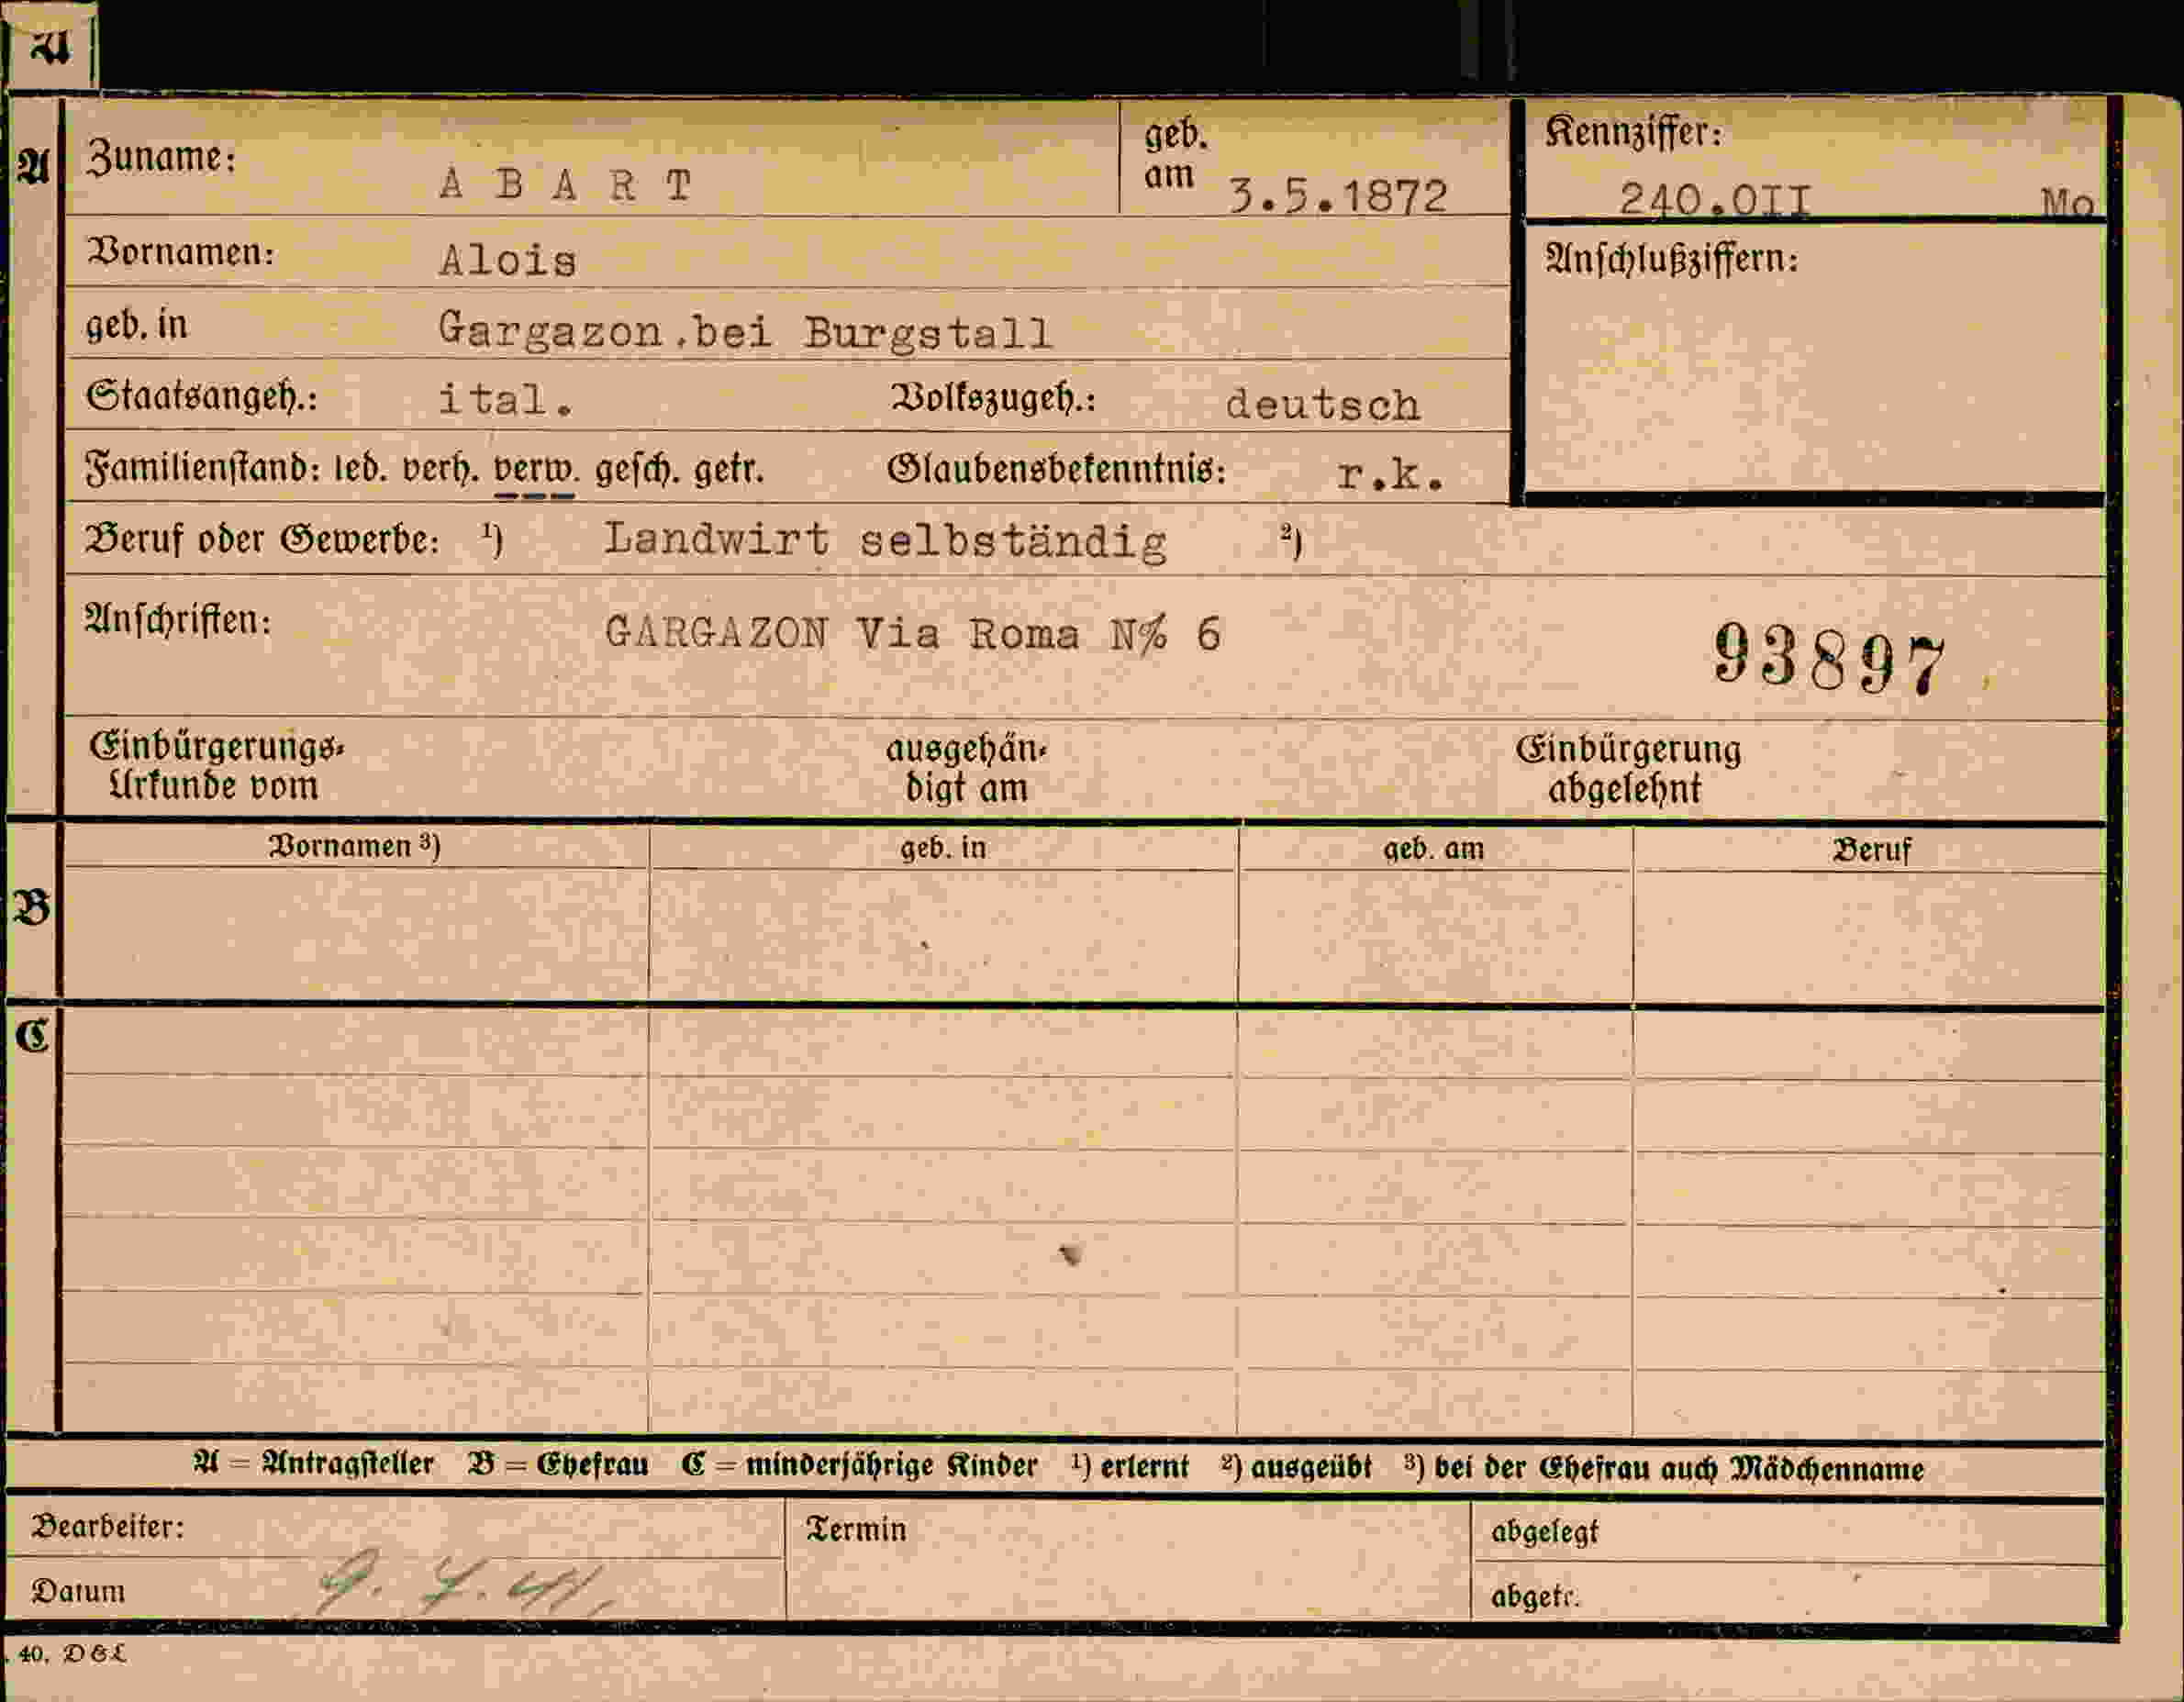 A
A Zuname: ABART geb. am 3.5.1872 Kennziffer: 240.0II Mo
Vornamen: Alois Anschlußziffern:
geb. in Gargazon.bei Burgstall
Staatsangeh.: ital. Volkszugeh.: deutsch
Familienstand: led. verh. verw. gesch. getr. Glaubensbekenntnis: r.k.
Beruf oder Gewerbe: ¹) Landwirt selbständig ²)
Anschriften: GARGAZON Via Roma N% 6 93897
Einbürgerungs- ausgehän- Einbürgerung
Urkunde vom digt am abgelehnt
Vornamen ³) geb. in geb. am Beruf
B
C
A = Antragsteller B = Ehefrau C = minderjährige Kinder ¹) erlernt ²) ausgeübt ³) bei der Ehefrau auch Mädchenname
Bearbeiter: Termin abgelegt
Datum abgetr.
40. D&L